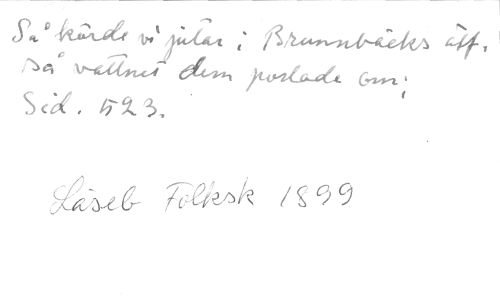 Så körde vi jutar i Brunnbäcks älf.
Så vattnet dem porlade om;
Sid. 523.
Läseb Folksk 1899